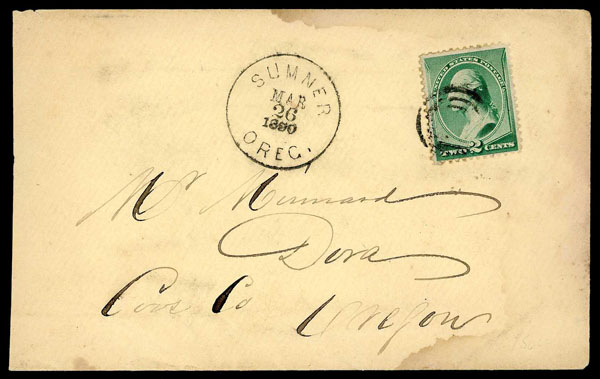 SUMNER
MAR
26
1890
OREG.
UNITED STATES POSTAGE
TWO 2 CENTS
Mr Minard
Dora
Coos Co Oregon